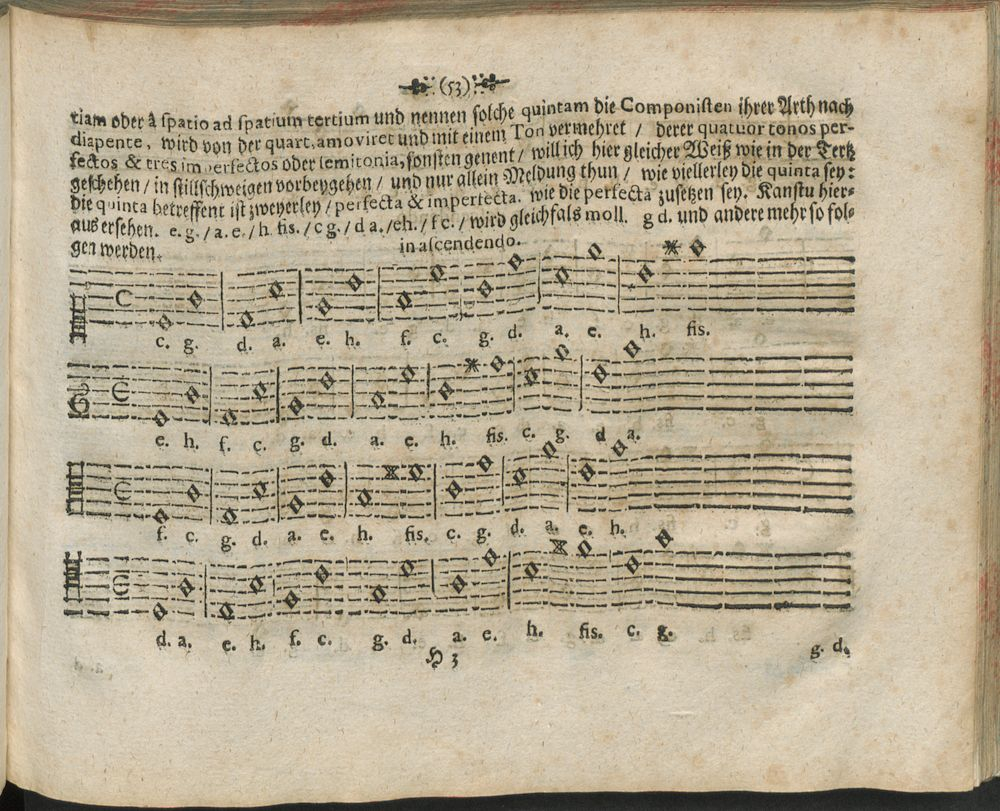 (53)
tiam oder â spatio ad spatium tertium und nennen solche quintam die Componisten ihrer Arth nach
diapente, wird von der quart, amoviret und mit einem Ton vermehret / derer quatuor tonos per-
fectos & tres imperfectos oder semitonia, sonsten genent / will ich hier gleicher Weiß wie in der Tertz
geschehen / in stillschweigen vorbeygehen / und nur allein Meldung thun / wie viellerley die quinta sey:
die quinta betreffent ist zweyerley / perfecta & imperfecta. wie die perfecta zusetzen sey. Kanstu hier-
aus ersehen. e. g. / a. e. / h fis. / c g. / d a. / eh. / f c. / wird gleichfals moll. g d. und andere mehr so fol-
gen werden. in ascendendo.
c. g. d. a. e. h. f. c. g. d. a. e. h. fis.
e. h. f. c. g. d. a. e. h. fis. c. g. d a.
f. c. g. d. a. e. h. fis. c. g. d. a. e. h.
d. a. e. h. f. c. g. d. a. e. h. fis. c. g.
H 3 g. d.